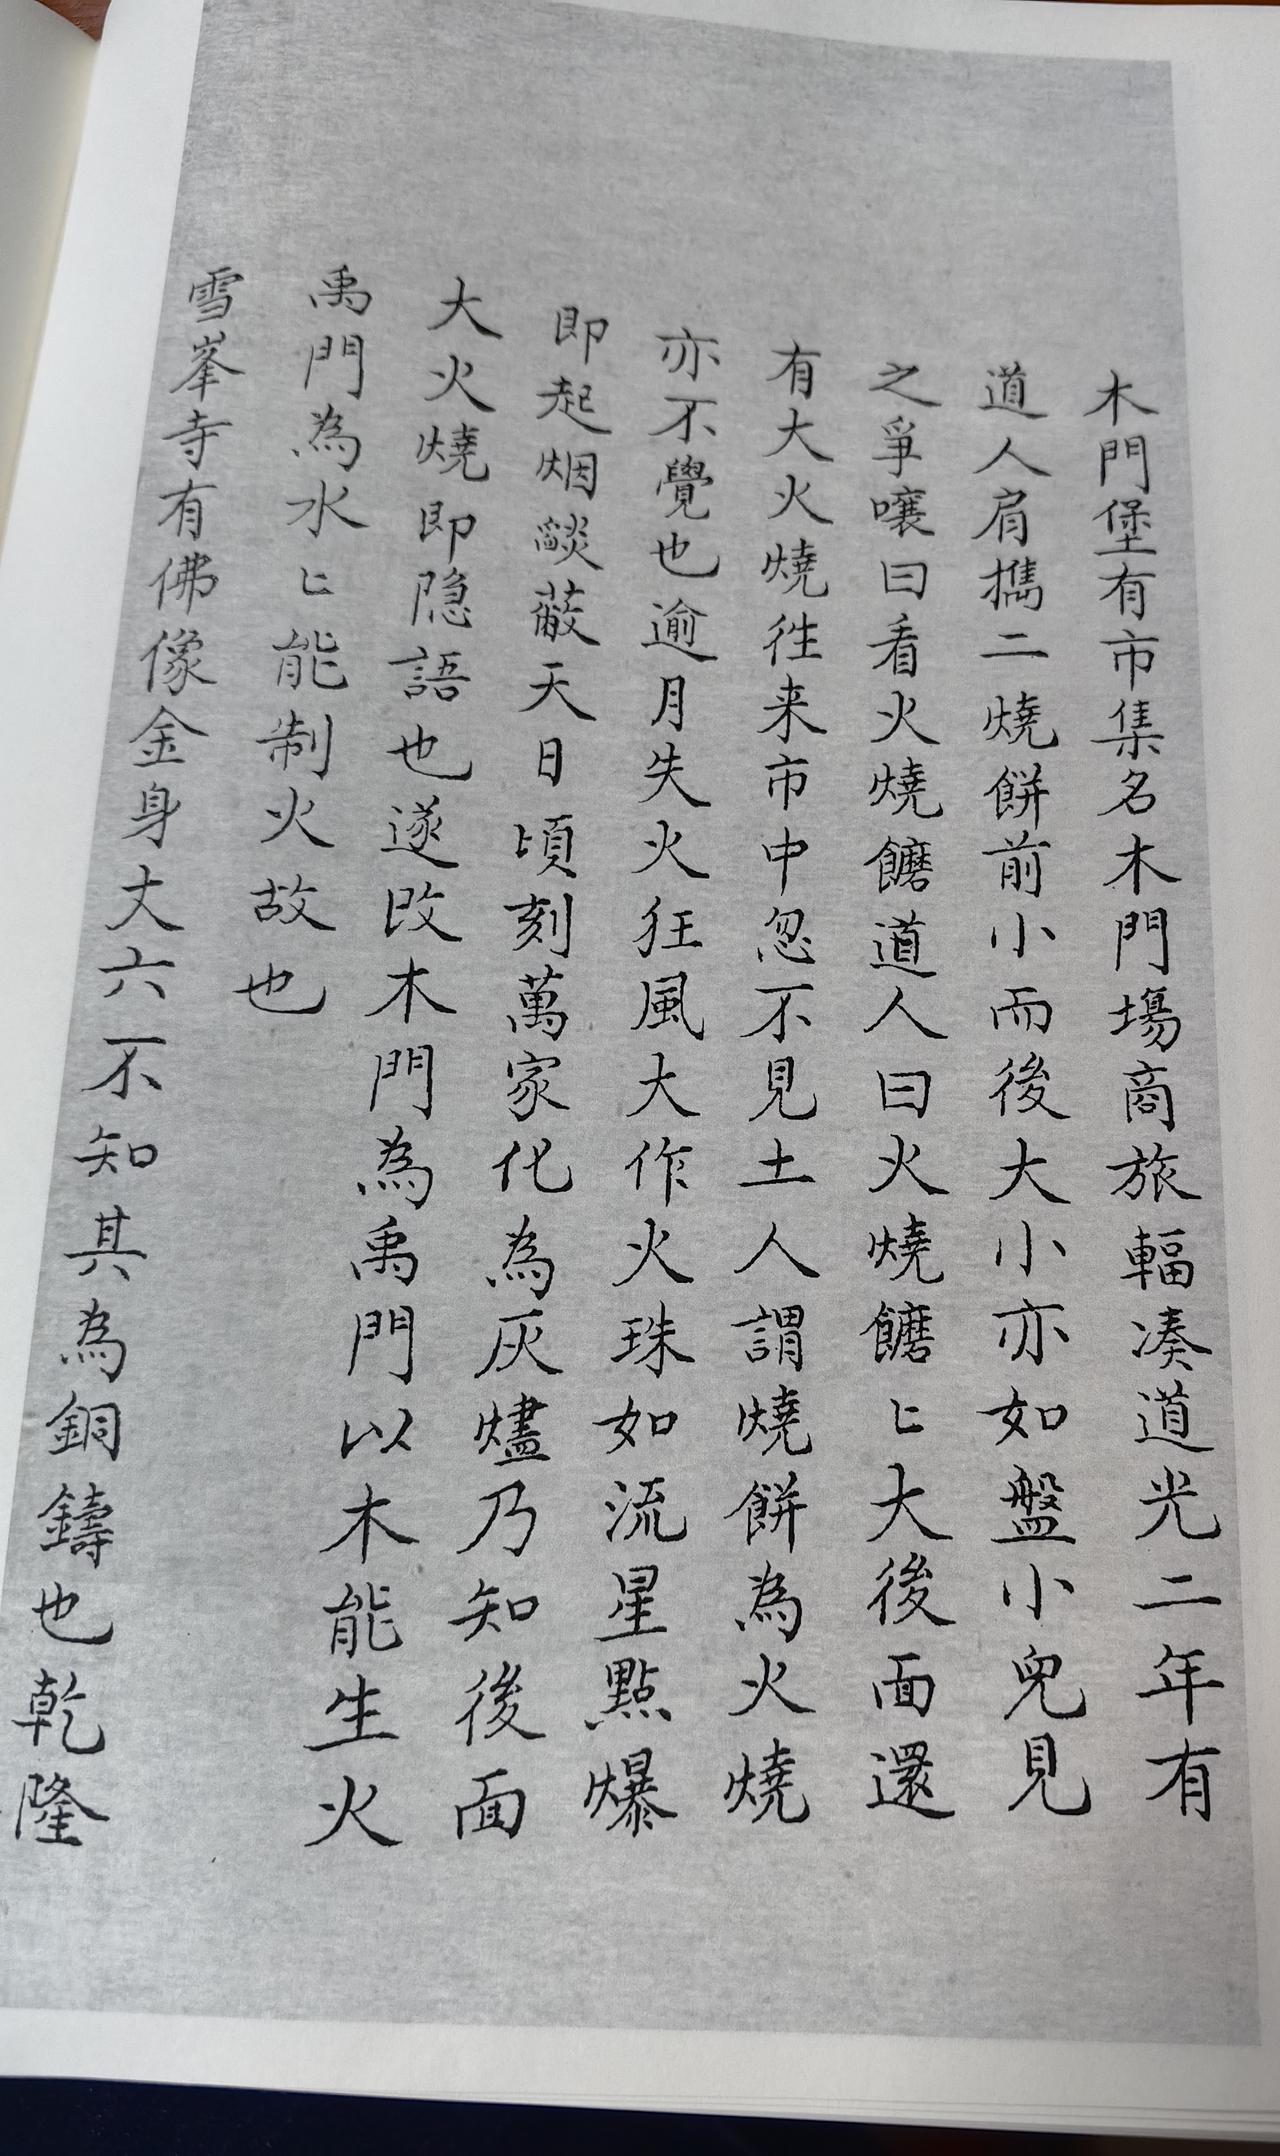 木門堡有市集名木門塲商旅輻凑道光二年有
道人肩擕二燒餅前小而後大小亦如盤小兒見
之爭嚷曰看火燒饝道人曰火燒饝〻大後面還
有大火燒徃来市中忽不見土人謂燒餅為火燒
亦不覺也逾月失火狂風大作火珠如流星點爆
即起烟燄蔽天日頃刻萬家化為灰燼乃知後面
大火燒即隐語也遂改木門為禹門以木能生火
禹門為水〻能制火故也
雪峯寺有佛像金身丈六不知其為銅鑄也乾隆